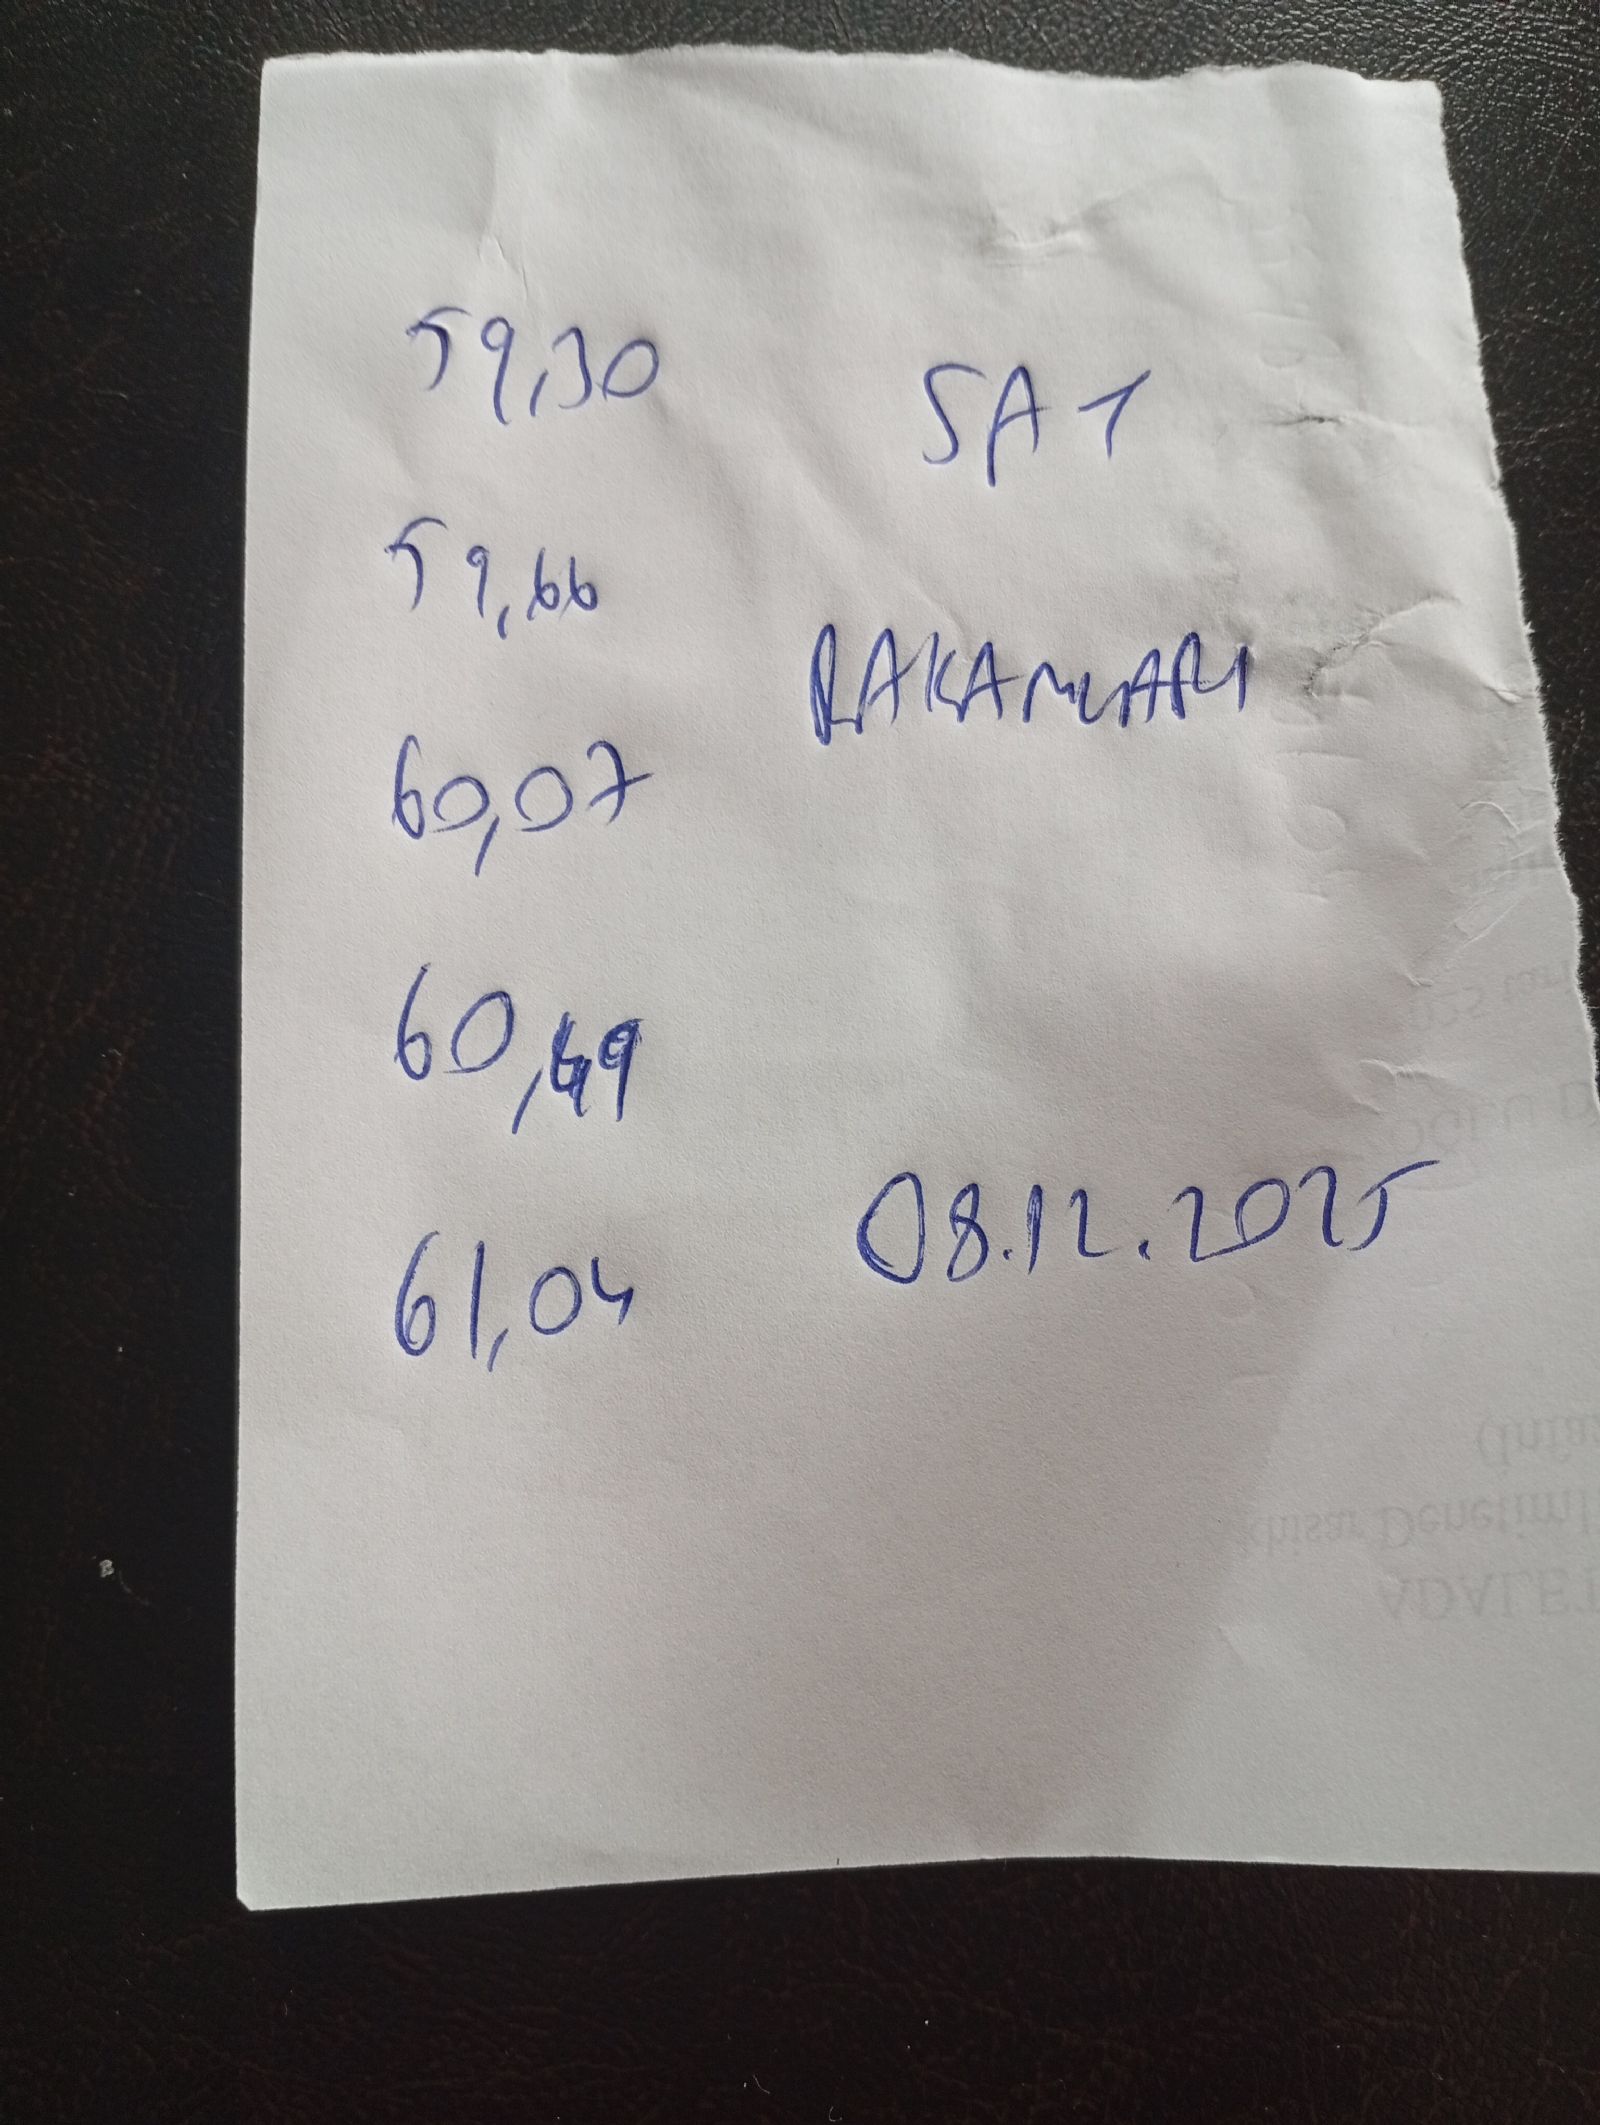 59,30
SAT
59,66
RAKAMLARI
60,07
60,49
08.12.2025
61,04